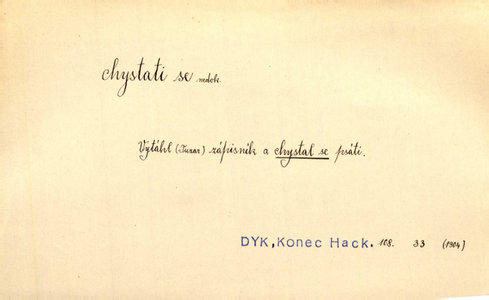 chystati se nedok.
Vytáhl (Turar) zápisník a chystal se psáti.
DYK, Konec Hack. 108. 33 (1904)